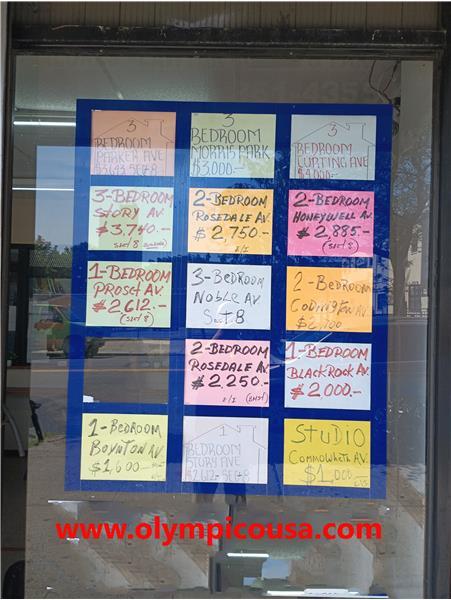 3
BEDROOM
PARKER AVE
3
BEDROOM
MORRIS PARK
$3,000.—
3
BEDROOM
AVE
$4,000.—
3-BEDROOM
STORY AV.
$3,740.—
(sect 8)
2-BEDROOM
ROSEDALE AV.
$2,750.—
E/I
2-BEDROOM
HONEYWELL AV.
$2,885.—
(sect 8)
1-BEDROOM
PROSPT AV.
$2612.—
(sect 8)
3-BEDROOM
NOBLE AV
Sect 8
2-BEDROOM
AV.
2-BEDROOM
ROSEDALE AV.
$2,250.—
E/I
1-BEDROOM
BLACKROCK AV.
$2000.—
1-BEDROOM
BOYNTON AV
$1,600—
1
BEDROOM
STORY AVE
STUDIO
AV.
$1,000
www.olympicousa.com